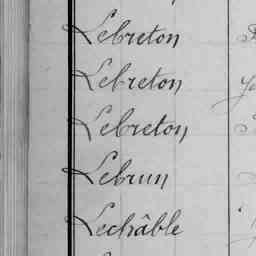 Lebreton
Lebreton
Lebreton
Lebrun
Lechâble